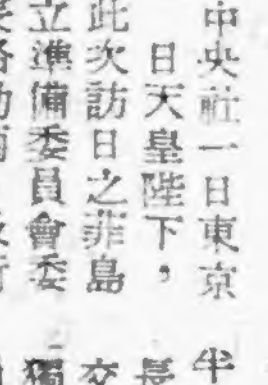 中央社一日東京
日天皇陛下，
此次訪日之菲島
立準備委員會委
半
長
交
獨